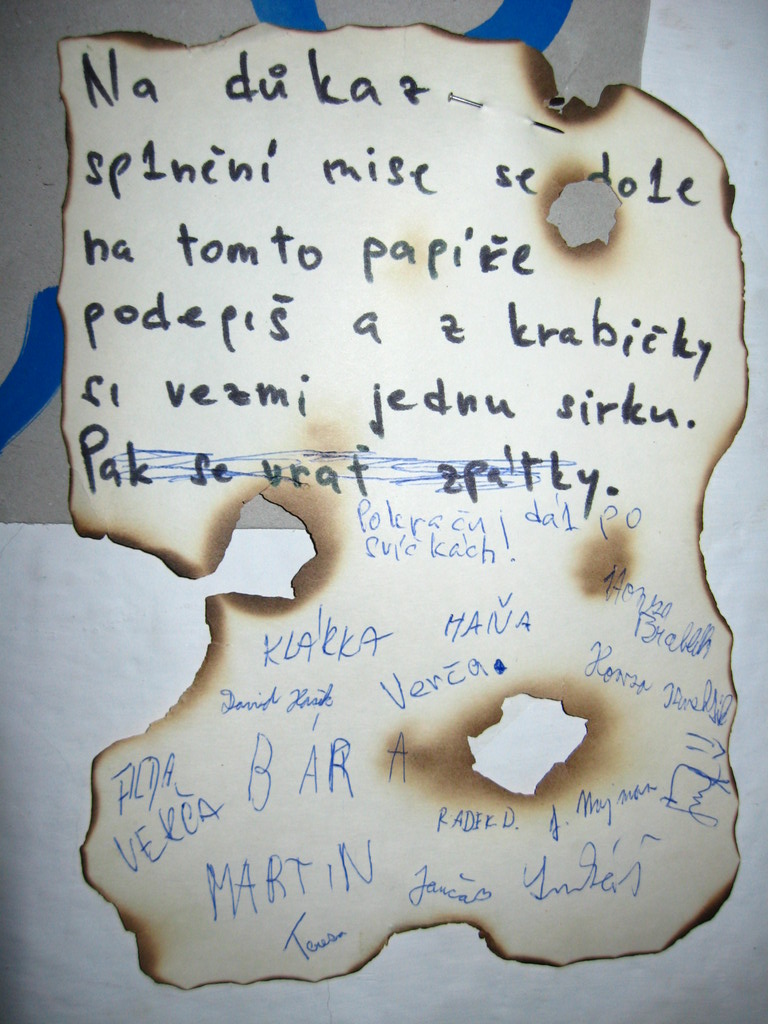 Na důkaz
sp1nění mise se do1e
na tomto papíře
podepiš a z krabičky
si vezmi jednu sirku.
Pak se vrať zpátky.
Pokračuj dá1 po
svíčkách!
Honza
Brabec
KLÁRKA HAŇA
Honza
David Verča
BÁRA
FILDA
VERČA
RADEK D. J. Najman
MARTIN Jančas
Teresa